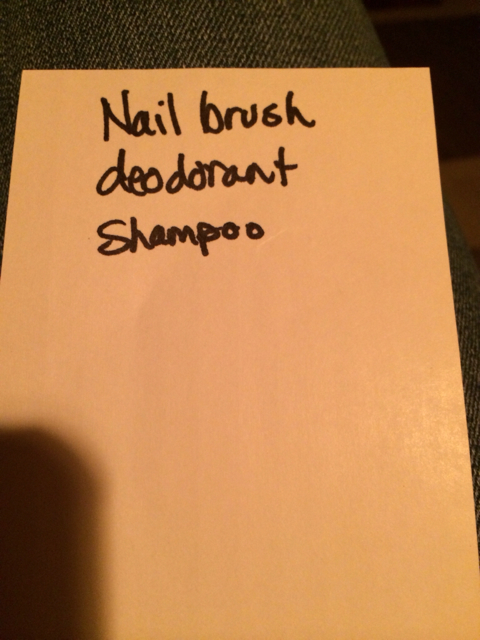 Nail brush
deodorant
Shampoo